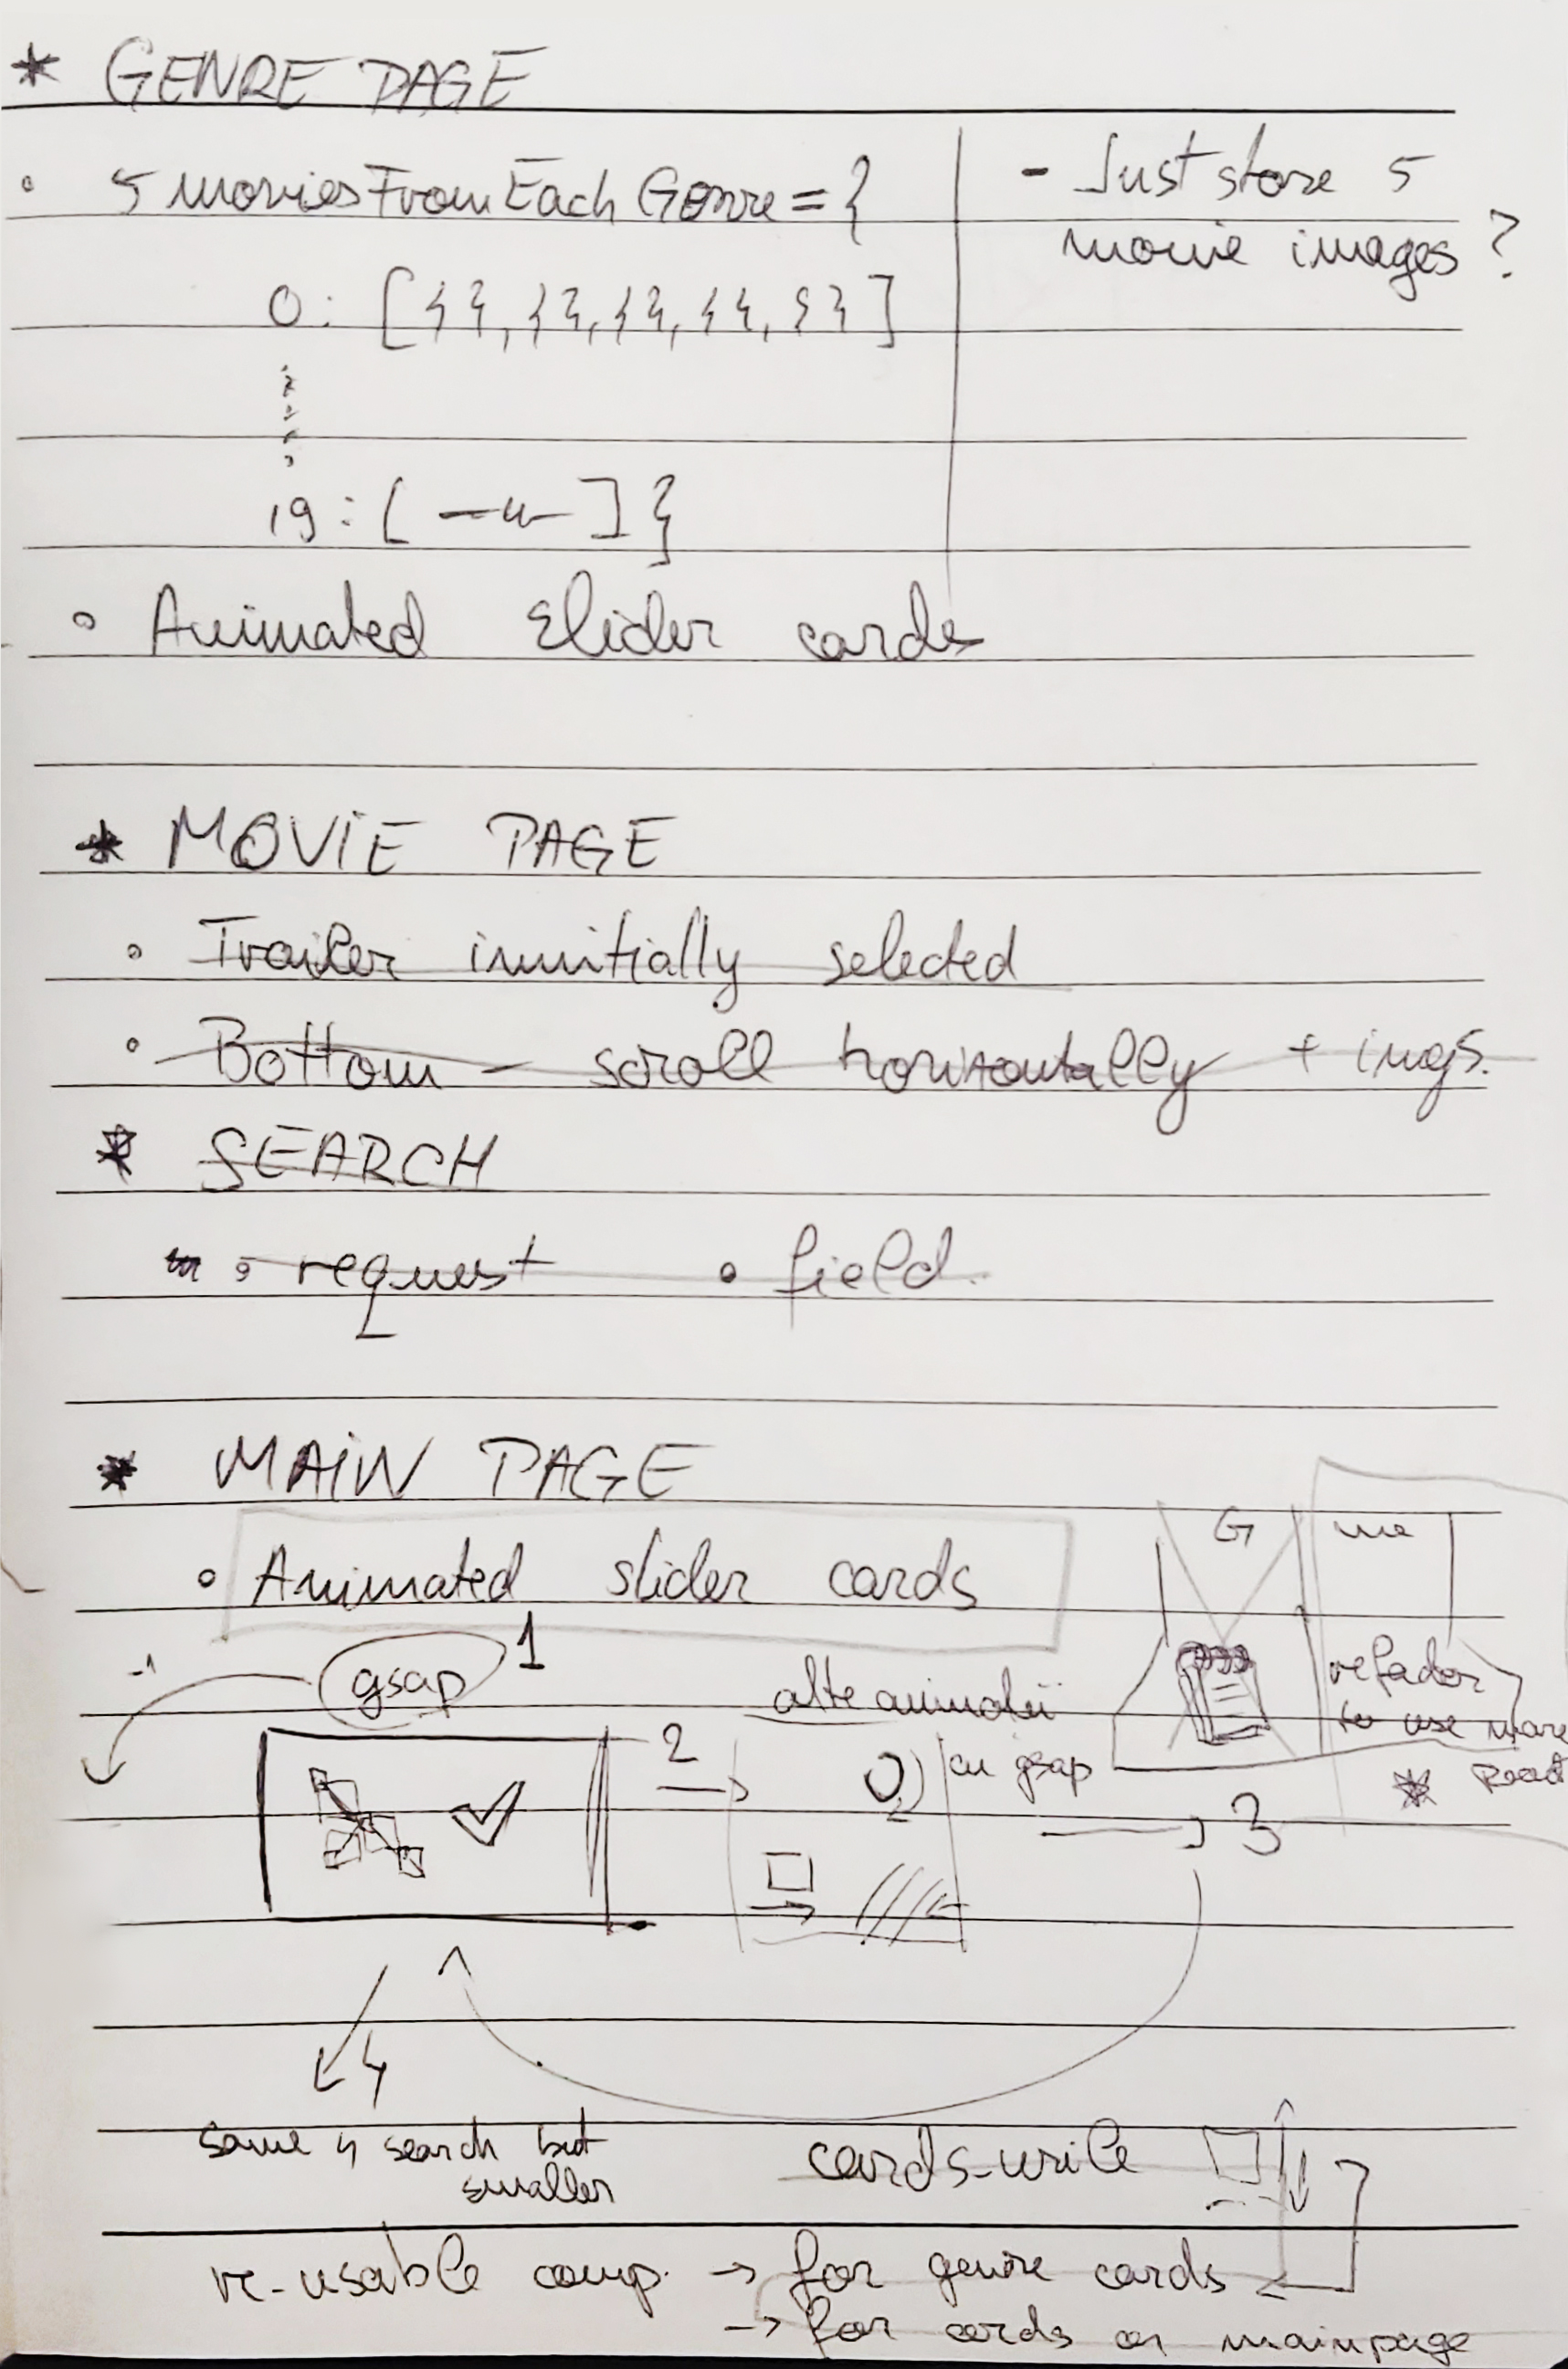 * GENRE PAGE
• 5moviesFromEachGenre = {
- Just store 5
movie images?
0: [{ }, { }, { }, { }, { }]
19: [ —"— ] }
• Animated slider cards
* MOVIE PAGE
• Trailer innitially selected
• Bottom - scroll horizontally + imgs.
* SEARCH
• request • field.
* MAIN PAGE
• Animated slider cards
G
me
gsap 1
-1
alte animatii
cu gsap
refactor
to use more
* React
2
3
4
same 4 search but
smaller
re-usable comp. → for genre cards
→ for cards on mainpage